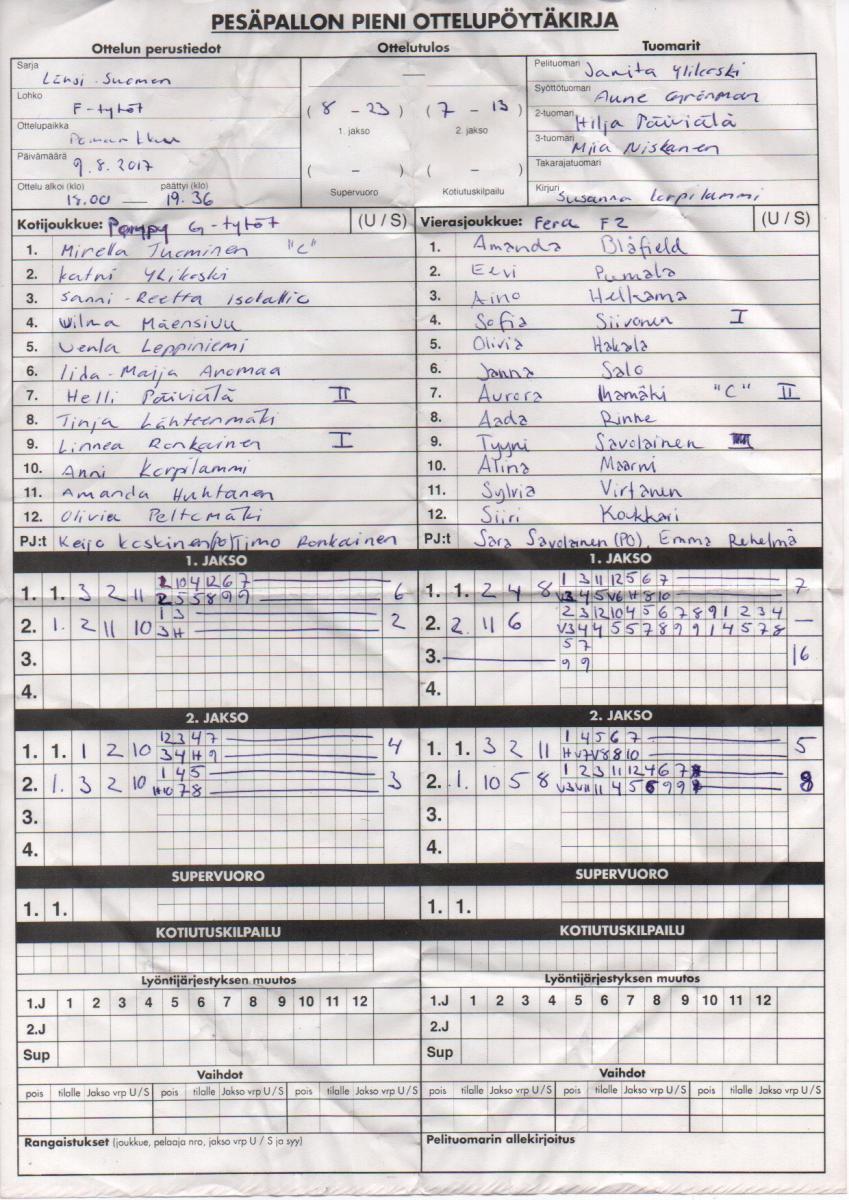 PESÄPALLON PIENI OTTELUPÖYTÄKIRJA
Ottelun perustiedot Ottelutulos Tuomarit
Sarja Länsi-Suomen
Lohko F-tytöt
Ottelupaikka
Päivämäärä 9.8.2017
Ottelu alkoi (klo) 18.00 — päättyi (klo) 19.36
( 8 - 23 ) ( 7 - 13 )
1. jakso 2. jakso
( - ) ( - )
Supervuoro Kotiutuskilpailu
Pelituomari Janita Ylikoski
Syöttötuomari Aune Grönman
2-tuomari Hilja Päiviälä
3-tuomari Miia Niskanen
Takarajatuomari
Kirjuri Susanna Korpilammi
Kotijoukkue: Pomppy G-tytöt (U / S) Vierasjoukkue: Fera F2 (U / S)
1. Mirella Tuominen "C" 1. Amanda Blåfield
2. Katri Ylikoski 2. Eevi Pumala
3. Sanni-Reetta Isotallio 3. Aino Helkama
4. Wilma Mäensivu 4. Sofia Siivonen I
5. Venla Leppiniemi 5. Olivia Hakala
6. Iida-Maija Aromaa 6. Janna Salo
7. Helli Päiviälä II 7. Aurora Ihamäki "C" II
8. Tinja Lähteenmäki 8. Aada Rinne
9. Linnea Ronkainen I 9. Tyyni Savolainen
10. Anni Korpilammi 10. Alina Maarni
11. Amanda Huhtanen 11. Sylvia Virtanen
12. Olivia Peltomäki 12. Siiri Koukkari
PJ:t Keijo Koskinen Timo Ronkainen PJ:t Sara Savolainen (PO), Emma Rehelmä
1. JAKSO 1. JAKSO
1. 1. 3 2 11 10 4 12 6 7 6 1. 1. 2 4 8 1 3 11 12 5 6 7 7
2 5 5 8 9 9 V3 4 5 V6 H 8 10
2. 1. 2 11 10 1 3 2 2. 2. 11 6 2 3 12 10 4 5 6 7 8 9 1 2 3 4 —
3 H V3 4 4 5 5 7 8 9 9 1 4 5 7 8
3. 3. 5 7 16
9 9
4. 4.
2. JAKSO 2. JAKSO
1. 1. 1 2 10 12 3 4 7 4 1. 1. 3 2 11 1 4 5 6 7 5
3 4 H 9 H V7 V8 8 10
2. 1. 3 2 10 1 4 5 3 2. 1. 10 5 8 1 2 3 11 12 4 6 7 8
H10 7 8 V3 V11 11 4 5 6 9 9
3. 3.
4. 4.
SUPERVUORO SUPERVUORO
1. 1. 1. 1.
KOTIUTUSKILPAILU KOTIUTUSKILPAILU
Lyöntijärjestyksen muutos Lyöntijärjestyksen muutos
1.J 1 2 3 4 5 6 7 8 9 10 11 12 1.J 1 2 3 4 5 6 7 8 9 10 11 12
2.J 2.J
Sup Sup
Vaihdot Vaihdot
pois tilalle Jakso vrp U / S pois tilalle Jakso vrp U / S pois tilalle Jakso vrp U / S pois tilalle Jakso vrp U / S pois tilalle Jakso vrp U / S pois tilalle Jakso vrp U / S
Rangaistukset (joukkue, pelaaja nro, jakso vrp U / S ja syy) Pelituomarin allekirjoitus